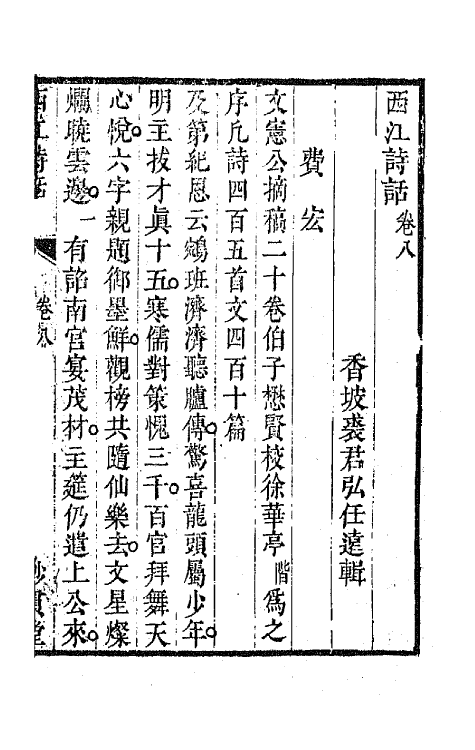 西江詩話卷八
香坡裘君弘任遠輯
費宏
文憲公摘稿二十卷伯子懋賢校徐華亭階為之
序凡詩四百五首文四百十篇
及第紀恩云鵷班濟濟聽臚傳驚喜龍頭屬少年
明主拔才眞十五寒儒對策愧三千百官拜舞天
心悅六字親題御墨鮮觀榜共隨仙樂去文星燦
爛曉雲邊一有詔南宮宴茂材主筵仍遣上公來
西江詩話
卷八
妙貫堂